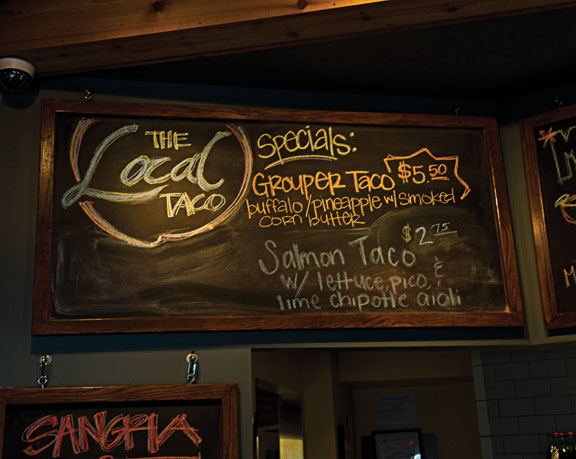 THE
Local
TACO
Specials:
GROUPER TACO $5.50
buffalo/pineapple w/ smoked
corn butter
Salmon Taco $2.75
w/ lettuce, pico, &
lime chipotle aioli
SANGRIA